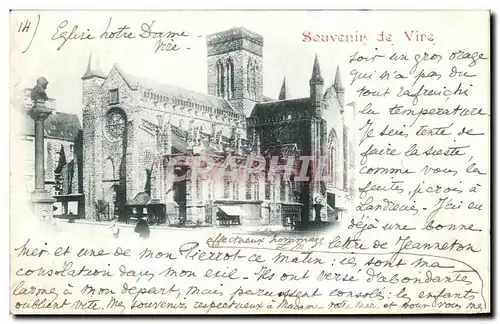 14)
Eglise Notre Dame
Vire
Souvenir de Vire
soir un gros orage
qui n'a pas du
tout rafraîchi
la température
Je suis tentée de
faire la sieste
comme vous la
faites je crois à
Landrevie. J'ai eu
déjà une bonne
lettre de Jeanneton
hier et une de mon Pierrot ce matin : ce sont ma
consolation dans mon exil. Ils ont versé d'abondantes
larmes à mon départ, mais paraissent consolés ; les enfants
oublient vite. Mes souvenirs respectueux à Madame votre mère et pour vous mes
affectueux hommages
CARTE-PHOTO.FR